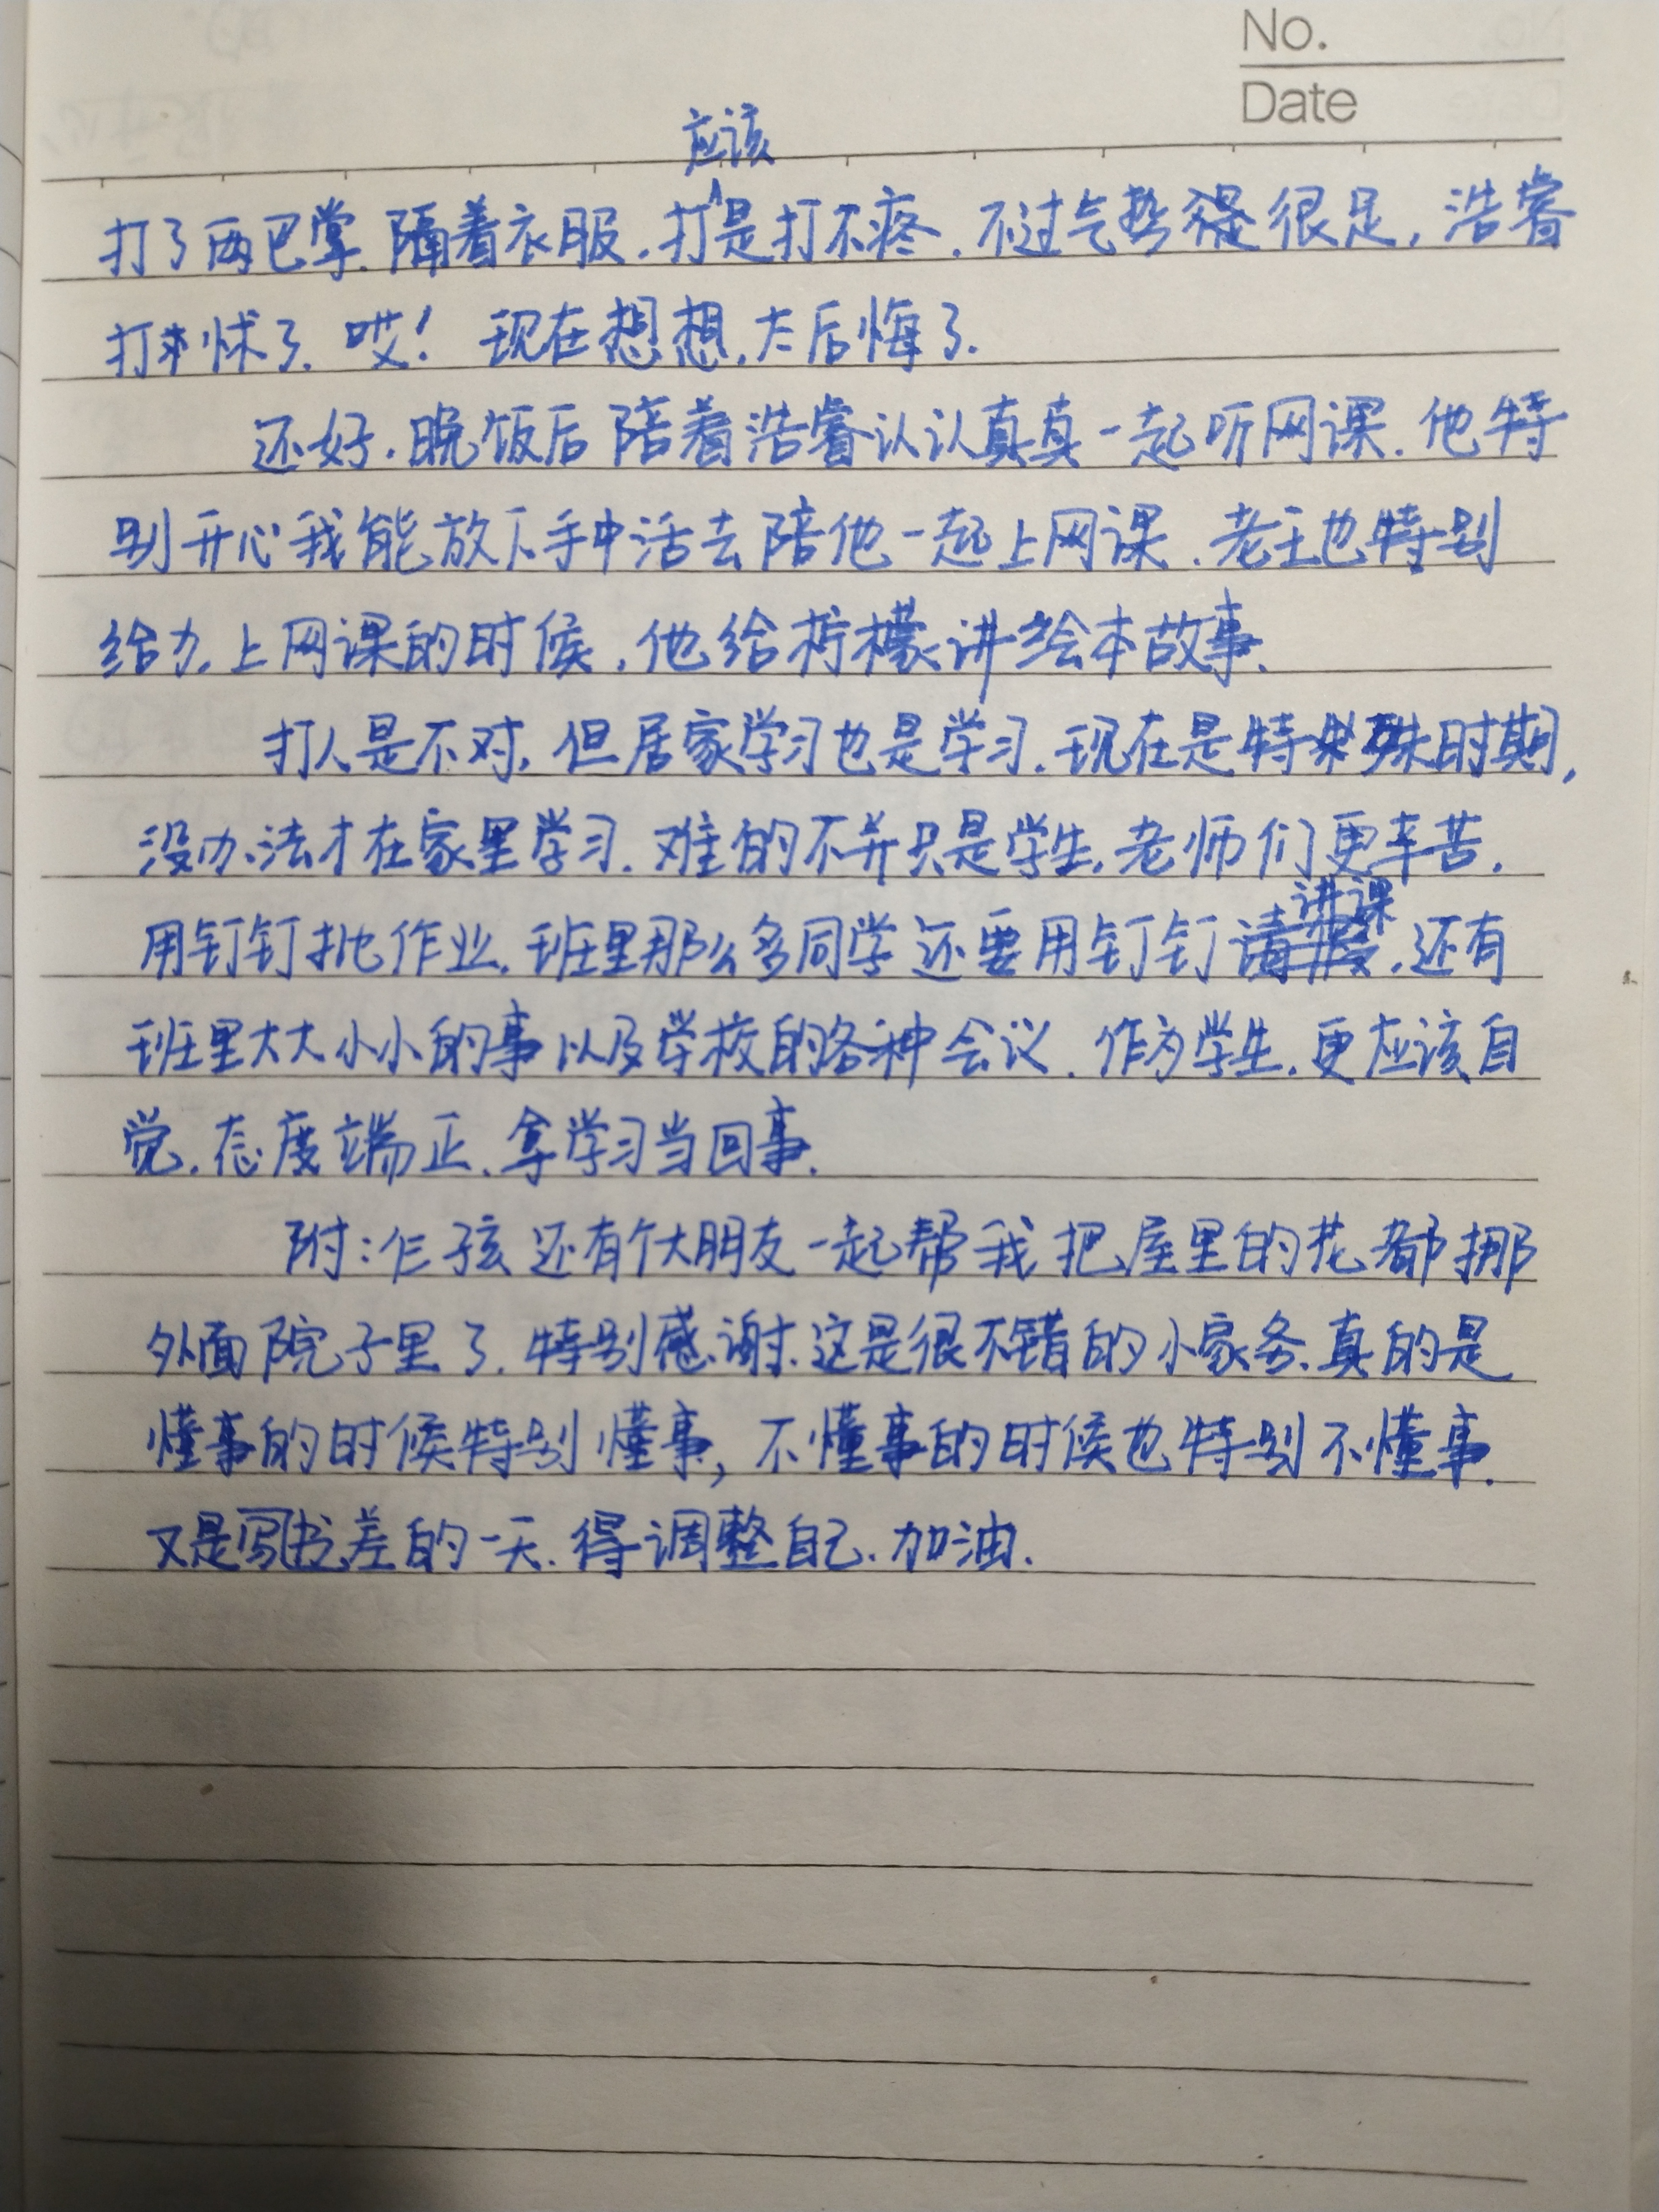 No.
Date
应该
打了两巴掌.隔着衣服.打是打不疼.不过气势很足,浩睿
打怵了.哎!现在想想.太后悔了.
还好.晚饭后陪着浩睿认认真真一起听网课.他特
别开心我能放下手中活去陪他一起上网课.老王也特别
给力.上网课的时候,他给柠檬讲绘本故事.
打人是不对,但居家学习也是学习.现在是特殊时期,
没办法才在家里学习.难的不并只是学生.老师们更辛苦.
讲课
用钉钉批作业.班里那么多同学还要用钉钉.还有
班里大大小小的事以及学校的各种会议.作为学生.更应该自
觉.态度端正.拿学习当回事.
附:仨孩还有个大朋友一起帮我把屋里的花都挪
外面院子里了.特别感谢.这是很不错的小家务.真的是
懂事的时候特别懂事,不懂事的时候也特别不懂事.
又是写差的一天.得调整自己.加油.